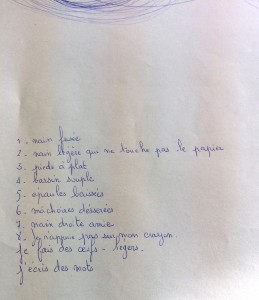 1 - main fixée
2 - main légère qui ne touche pas le papier
3 - pieds à plat
4 - bassin souple
5 - épaules baissées
6 - mâchoires désserées
7 - main droite amie
8 - je n'appuie pas sur mon crayon.
Je fais des œufs - légers.
J'écris des mots